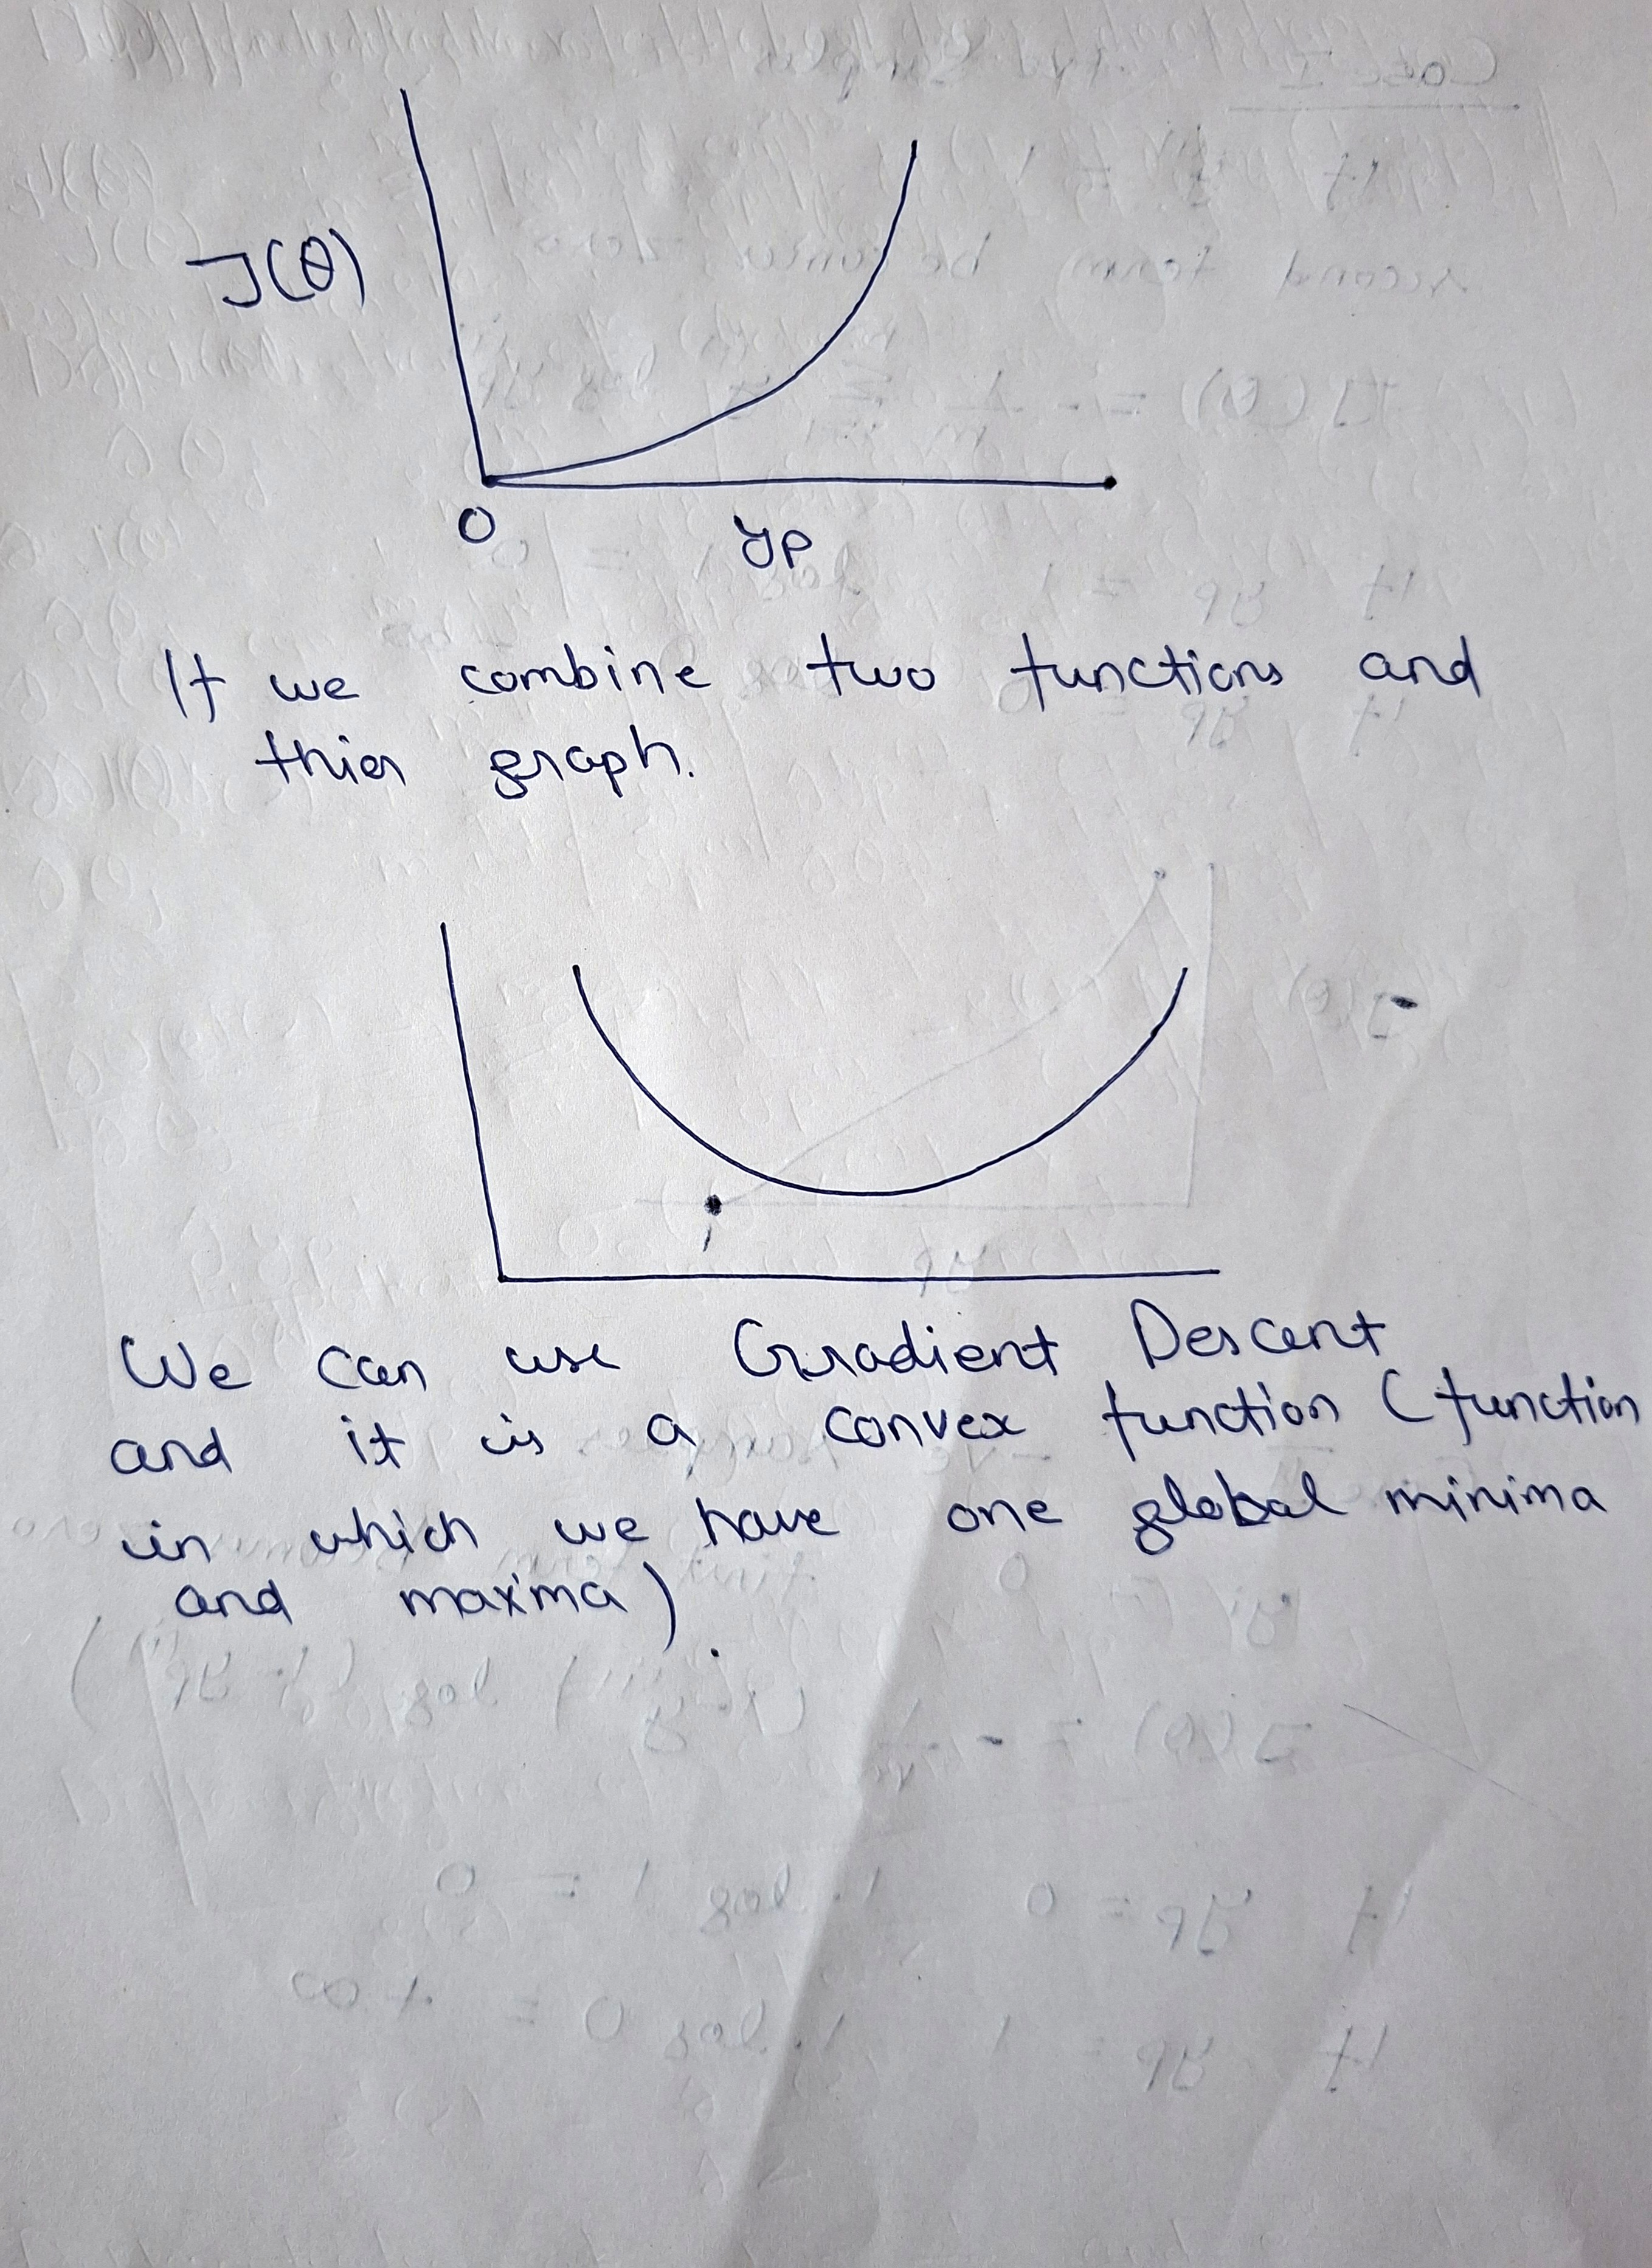 J(θ)
0
yp
If we combine two functions and
thier graph.
We can use Gradient Descent
and it is a convex function (function
in which we have one global minima
and maxima).